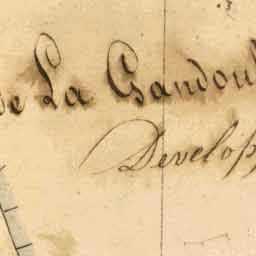 de La Gandou
Develop